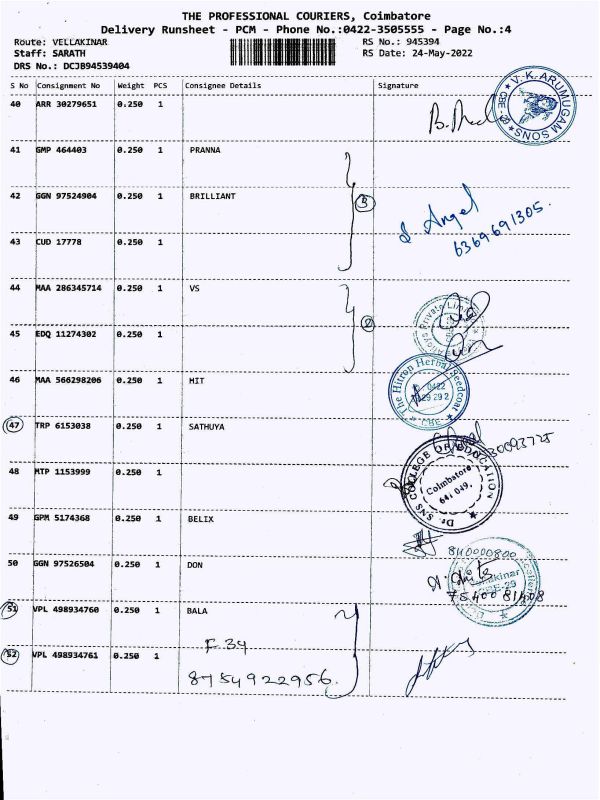 THE PROFESSIONAL COURIERS, Coimbatore
Delivery Runsheet - PCM - Phone No.:0422-3505555 - Page No.:4
Route: VELLAKINAR
RS No.: 945394
Staff: SARATH
RS Date: 24-May-2022
DRS No.: DCJB94539404
S No Consignment No Weight PCS Consignee Details Signature
40 ARR 30279651 0.250 1
V.K. ARUMUGAM SONS
41 GMP 464403 0.250 1 PRANNA
42 GGN 97524904 0.250 1 BRILLIANT
3
Angel
6369691305.
43 CUD 17778 0.250 1
44 MAA 286345714 0.250 1 VS
2
45 EDQ 11274302 0.250 1
46 MAA 566298206 0.250 1 HIT
The Hitrop Herbal Seedcoat
0422
CBE
47 TRP 6153038 0.250 1 SATHUYA
48 MTP 1153999 0.250 1
Dr. SNS COLLEGE OF EDUCATION
Coimbatore
641 049.
49 GPM 5174368 0.250 1 BELIX
50 GGN 97526504 0.250 1 DON
8110000800
75400 81408
51 VPL 498934760 0.250 1 BALA
F 34
52 VPL 498934761 0.250 1
8754922956.